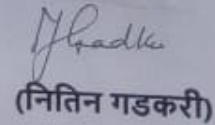 (नितिन गडकरी)